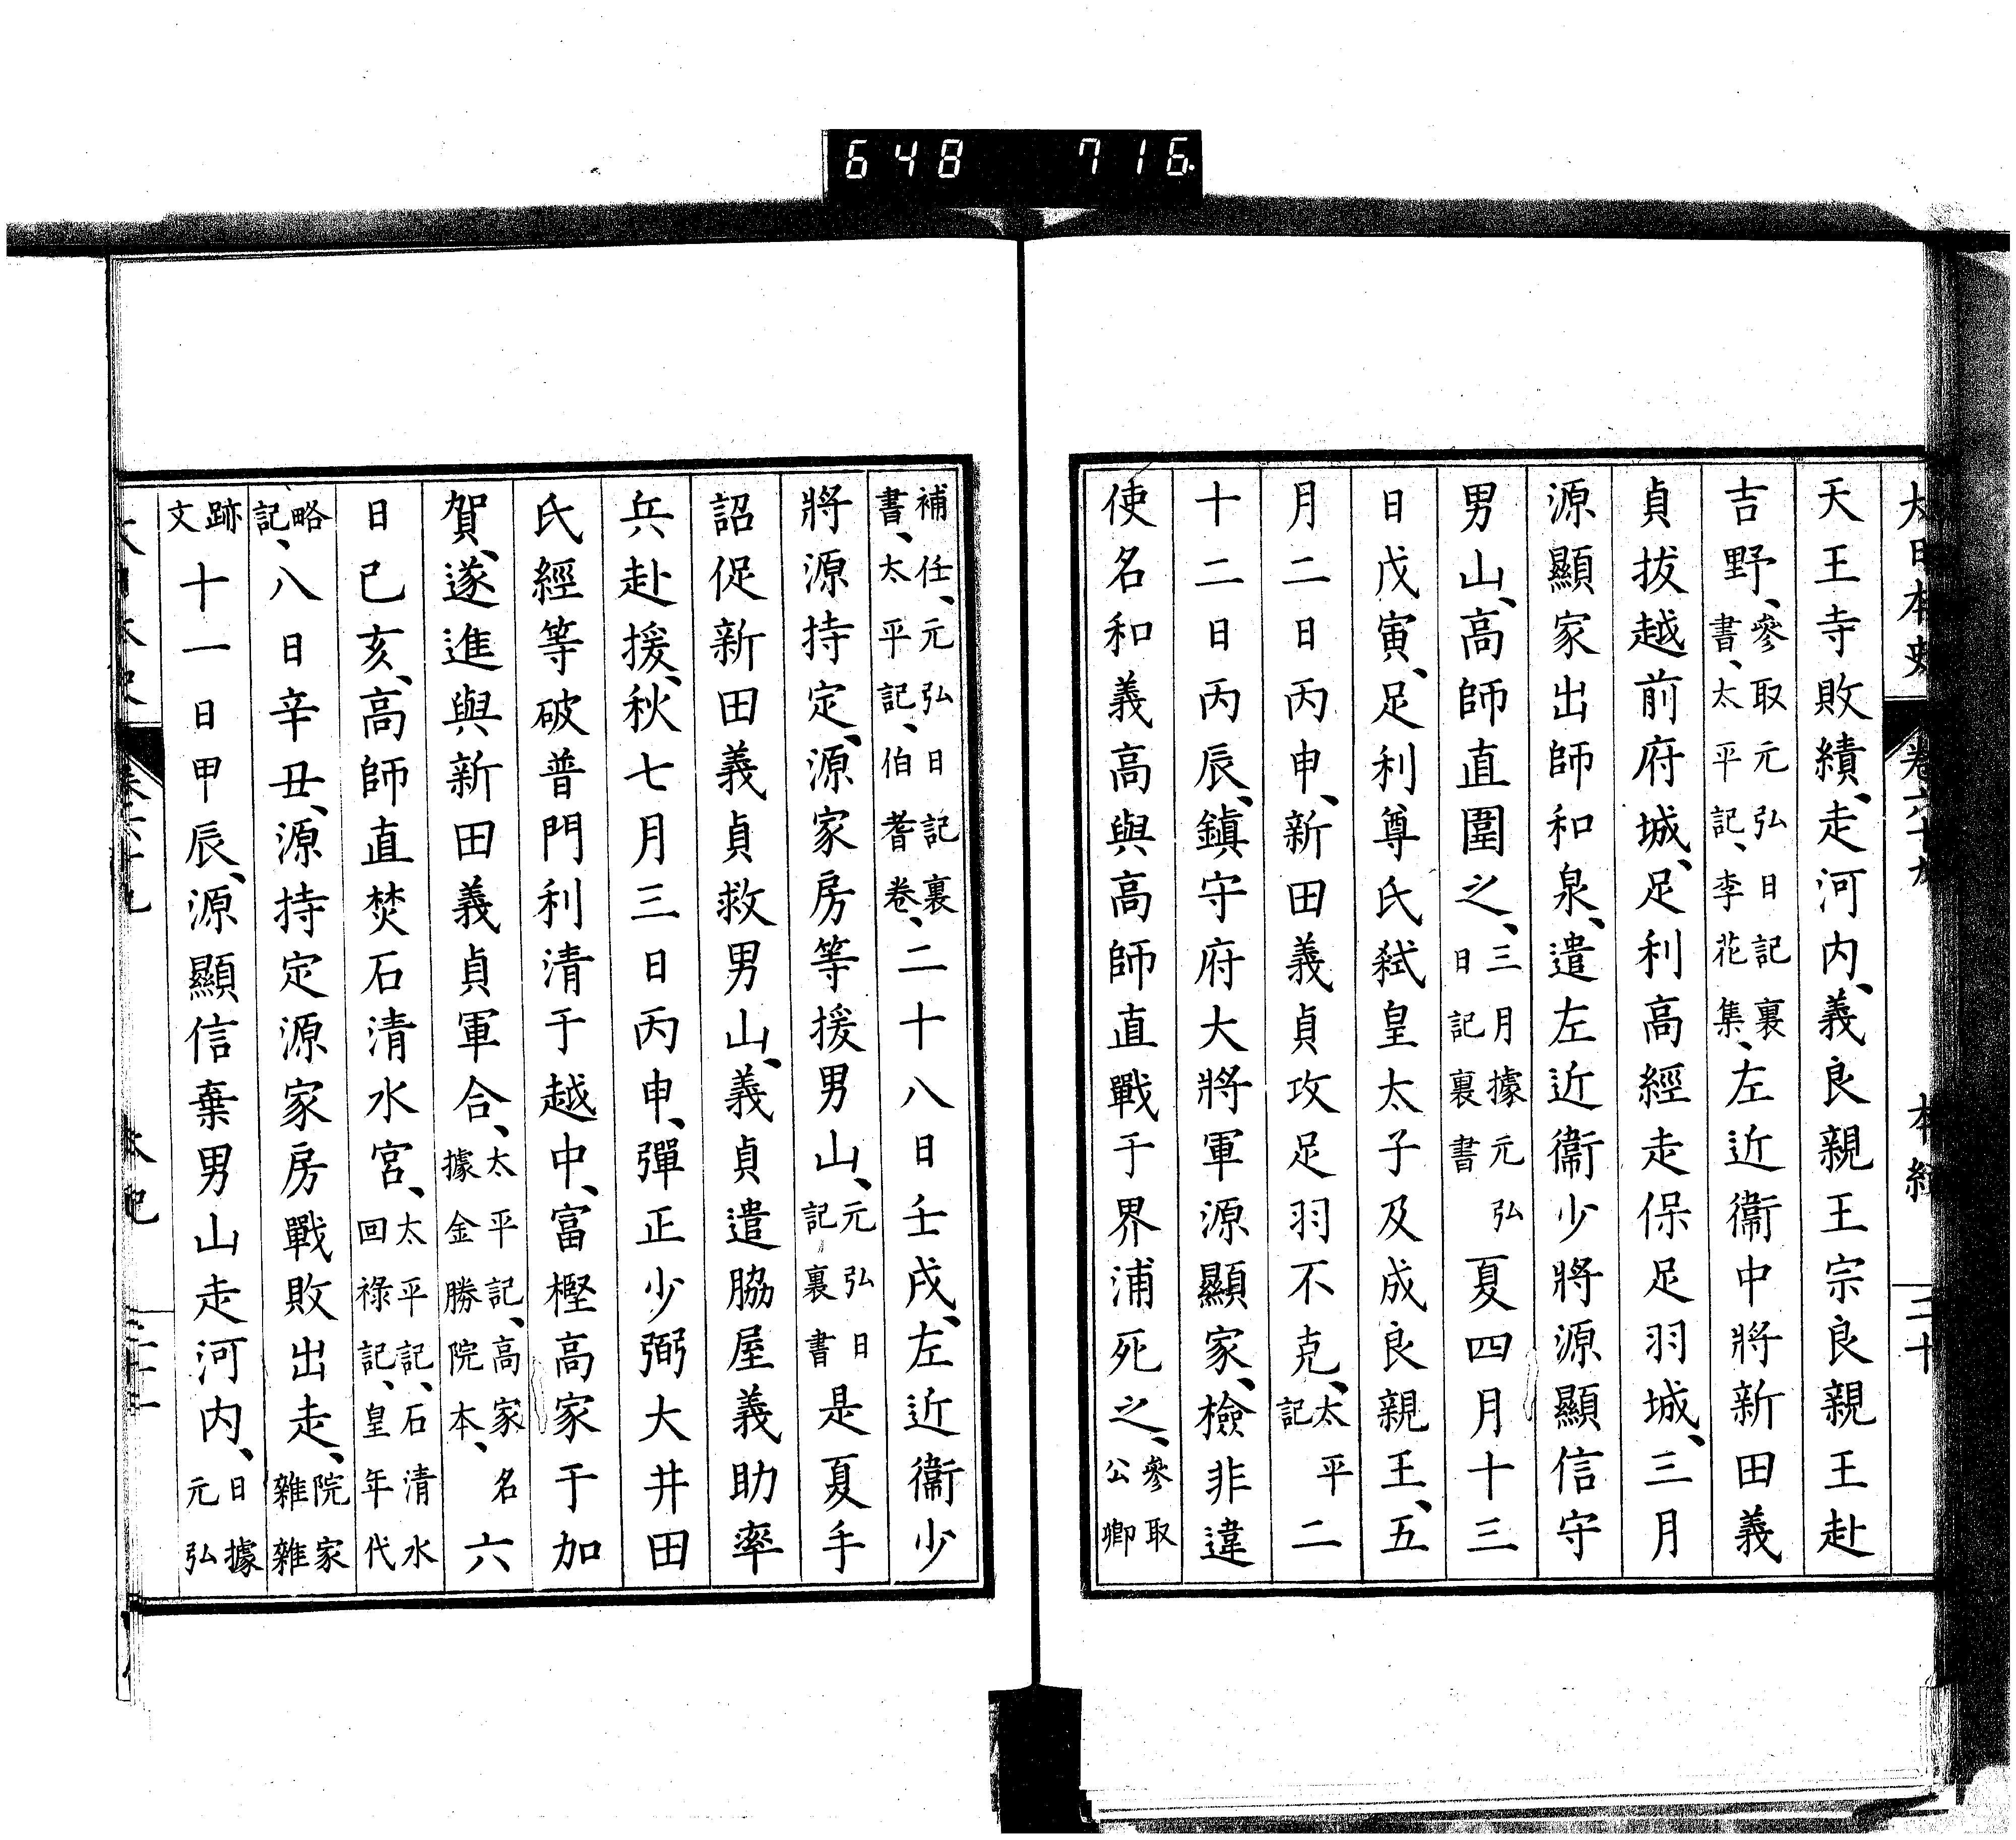 648 716
大日本史 卷六十九 本紀 三十
天王寺敗績、走河内、義良親王宗良親王赴
吉野、參取元弘日記裏書、太平記、李花集、左近衞中將新田義
貞拔越前府城、足利高經走保足羽城、三月
源顯家出師和泉、遣左近衞少將源顯信守
男山、高師直圍之、三月據元弘日記裏書夏四月十三
日戊寅、足利尊氏弑皇太子及成良親王、五
月二日丙申、新田義貞攻足羽不克、太平記二
十二日丙辰、鎭守府大將軍源顯家、檢非違
使名和義高與高師直戰于界浦死之、參取公卿
補任、元弘日記裏書、太平記、伯耆卷、二十八日壬戌、左近衞少
將源持定、源家房等援男山、元弘日記裏書是夏手
詔促新田義貞救男山、義貞遣脇屋義助率
兵赴援、秋七月三日丙申、彈正少弼大井田
氏經等破普門利清于越中、富樫高家于加
賀、遂進與新田義貞軍合、太平記、高家名據金勝院本、六
日己亥、高師直焚石清水宮、太平記、石清水回祿記、皇年代
略記、八日辛丑、源持定源家房戰敗出走、院家雜雜
跡文十一日甲辰、源顯信棄男山走河内、日據元弘